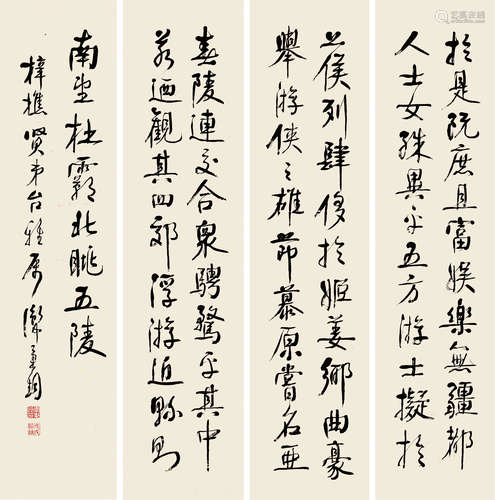 於是既庶且富娛樂無疆都
人士女殊異乎五方游士擬於
公侯列肆侈於姬姜鄉曲豪
舉游俠之雄節慕原嘗名亞
春陵連交合衆騁騖乎其中
若迺觀其四郊浮游近縣則
南望杜霸北眺五陵
梓樵賢弟台雅屬